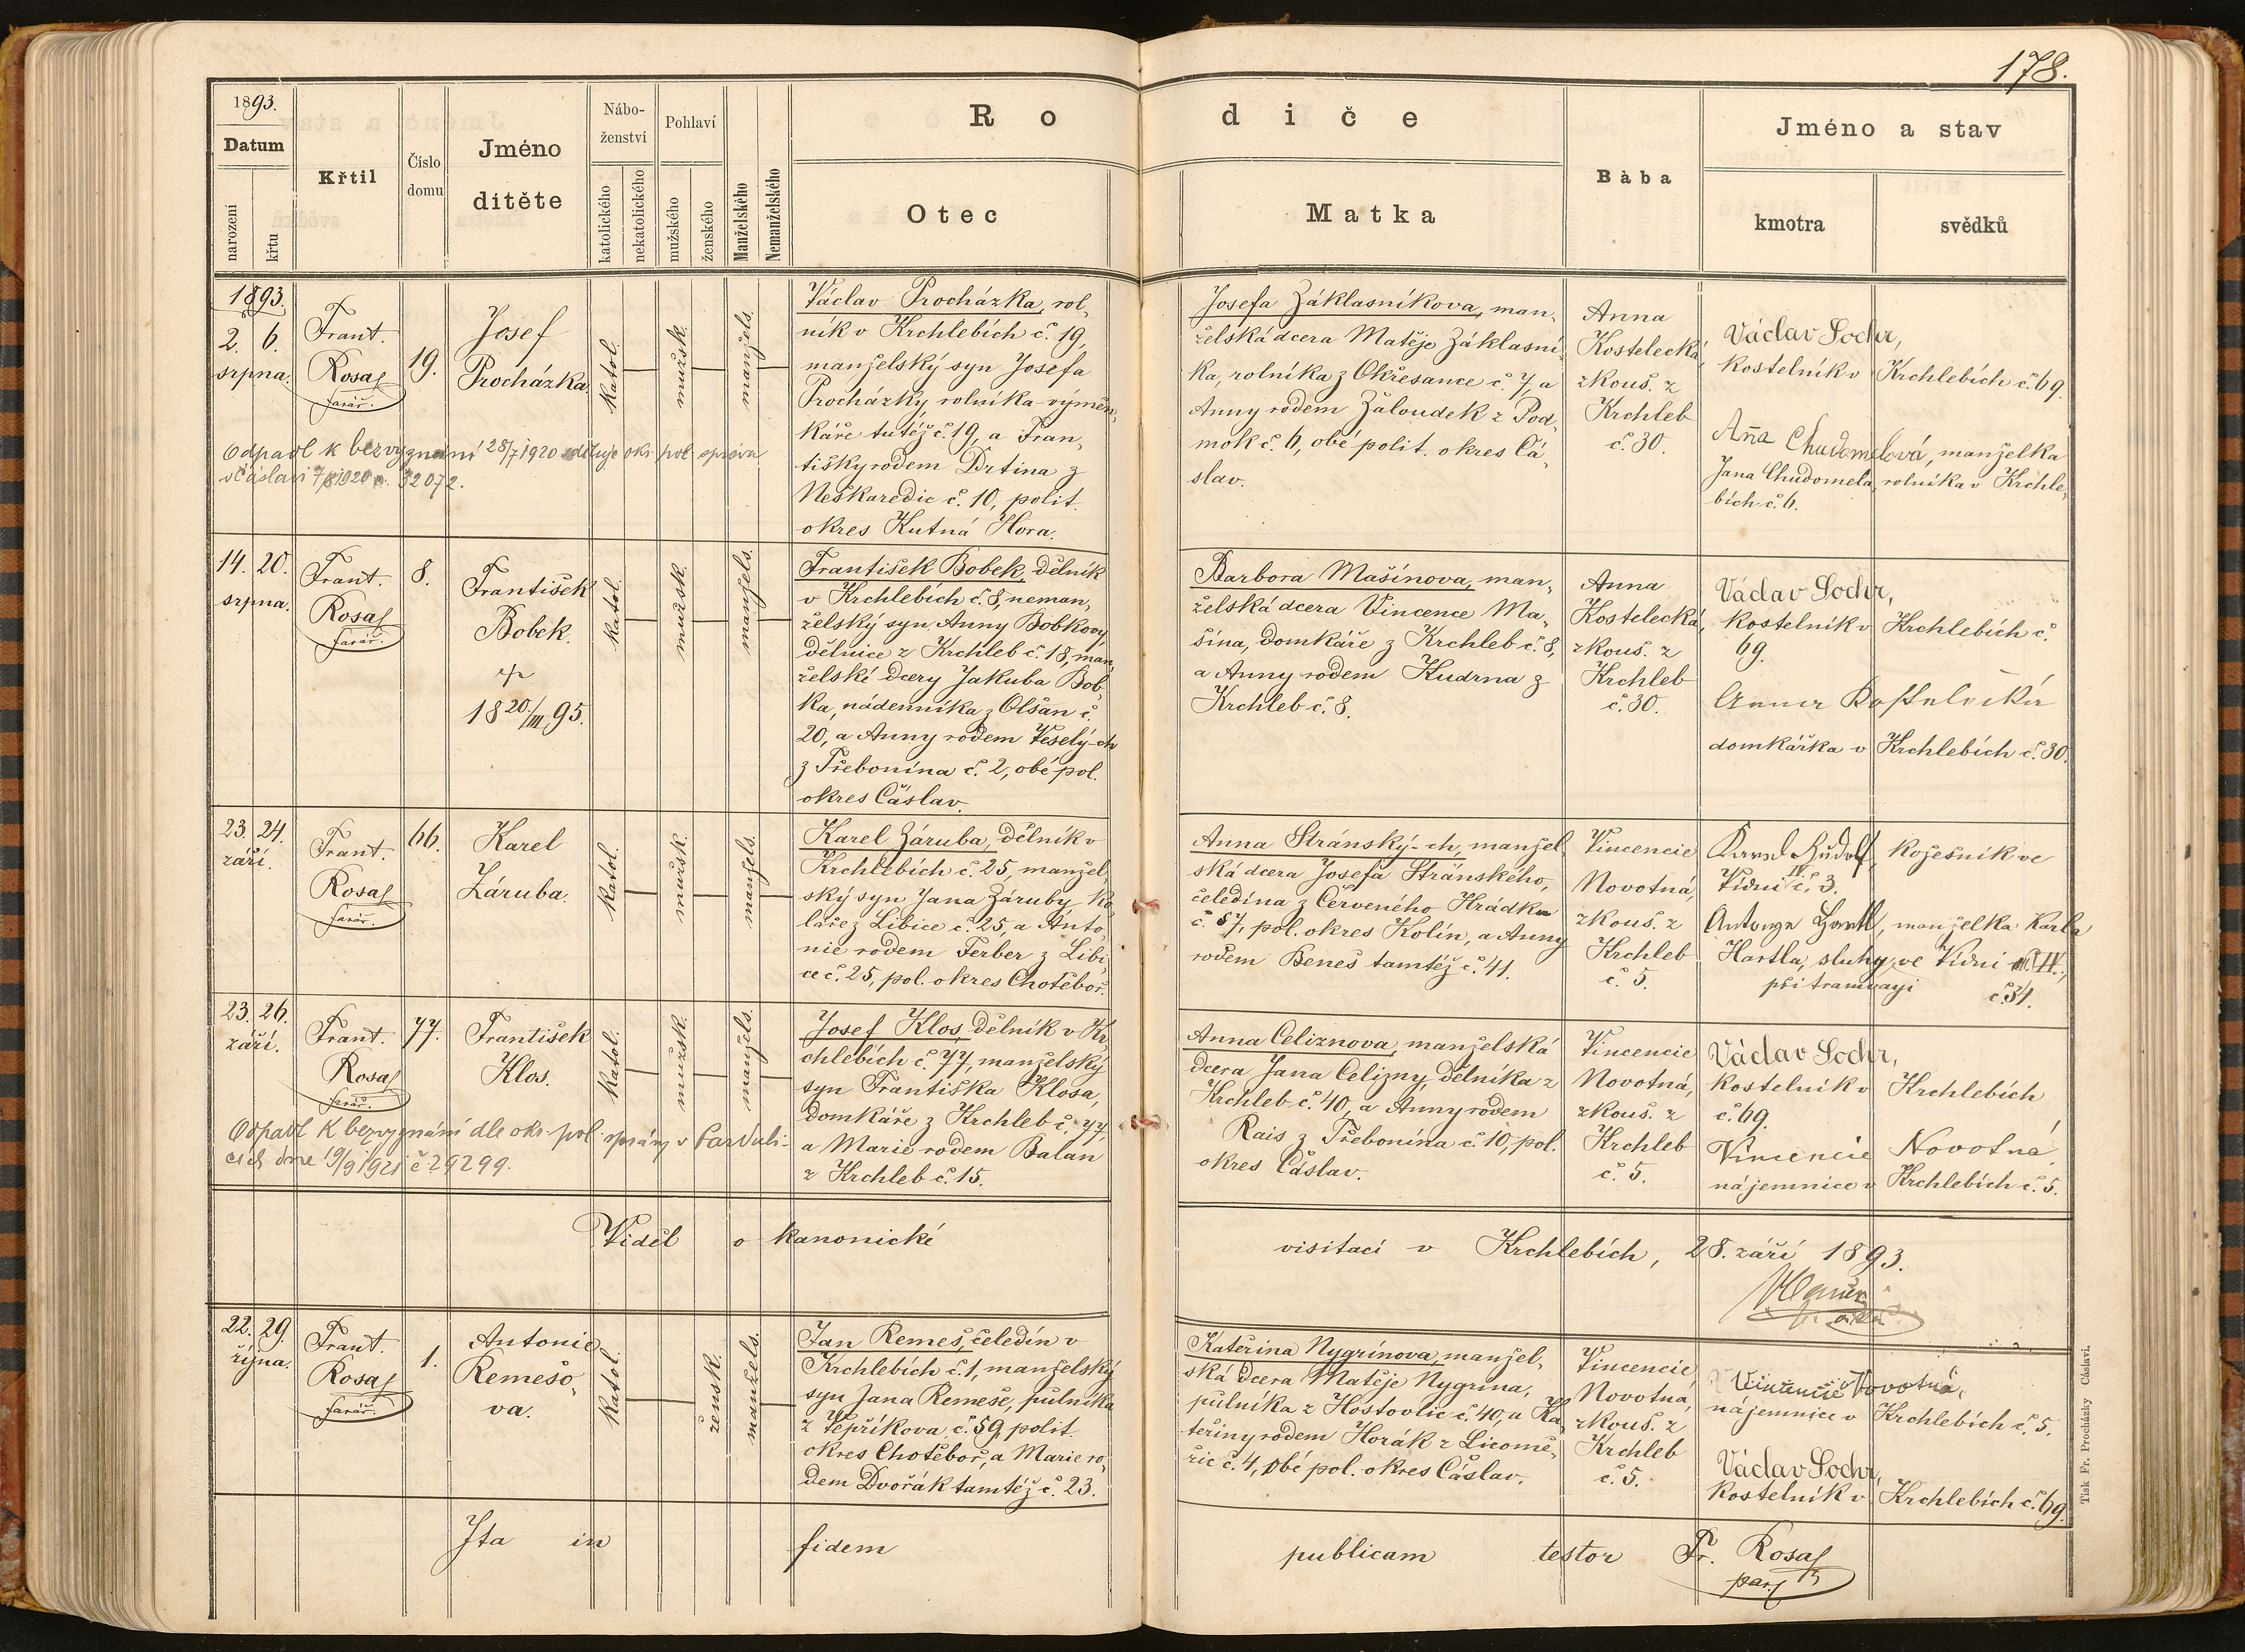 178.
1893.
Datum
narození
křtu
Křtil
Číslo
domu
Jméno
dítěte
Nábo-
ženství
katolického
nekatolického
Pohlaví
mužského
ženského
Manželského
Nemanželského
Rodiče
Otec
Matka
Bàba
Jméno a stav
kmotra
svědků
1893.
2. 6.
srpna.
Frant.
Rosa
farář.
19.
Josef
Procházka.
Katol.
mužsk.
manžels.
Václav Procházka, rol-
ník v Krchlebích č. 19,
manželský syn Josefa
Procházky rolníka-výmĕn-
káře tutéž č. 19, a Fran-
tišky rodem Drtina z
Neškaredic č. 10, polit.
okres Kutná Hora.
Josefa Záklasníkova, man-
želská dcera Matěje Záklasní-
ka, rolníka z Okřesance č. 7, a
Anny rodem Žaloudek z Pod-
mok č. 6, obé polit. okres Čá-
slav.
Anna
Kostelecká,
zkouš. z
Krchleb
č. 30.
Václav Sochr,
kostelník v Krchlebích č. 69.
Anna Chudomelová, manželka
Jana Chudomela, rolníka v Krchle-
bích č. 6.
Odpadl k bezvyznání 28/7 1920 sděluje okr. pol. správa
v Čáslavi 7/8 1920 n. 32072.
14. 20.
srpna.
Frant.
Rosa
farář.
8.
František
Bobek.
18 20/III 95.
Katol.
mužsk.
manžels.
František Bobek, dělník
v Krchlebích č. 8, neman-
želský syn Anny Bobkovy
dělnice z Krchleb č. 18, man-
želské dcery Jakuba Bob-
ka, nádenníka z Olšan č.
20, a Anny rodem Veselý-ch
z Třebonína č. 2, obé pol.
okres Čáslav.
Barbora Mašínova, man-
želská dcera Vincence Ma-
šína, domkáře z Krchleb č. 8,
a Anny rodem Kudrna z
Krchleb č. 8.
Anna
Kostelecká,
zkouš. z
Krchleb
č. 30.
Václav Sochr,
kostelník v Krchlebích č.
69.
Anna Kostelecká
domkářka v Krchlebích č. 30.
23. 24.
září.
Frant.
Rosa
farář.
66.
Karel
Záruba.
Katol.
mužsk.
manžels.
Karel Záruba, dělník v
Krchlebích č. 25, manžel-
ský syn Jana Záruby ko-
láře z Libice č. 25, a Anto-
nie rodem Ferber z Libi-
ce č. 25, pol. okres Chotěboř.
Anna Stránský-ch, manžel-
ská dcera Josefa Stránského,
čeledína z Červeného Hrádku
č. 57, pol. okres Kolín, a Anny
rodem Beneš tamtéž č. 41.
Vincencie
Novotná,
zkouš. z
Krchleb
č. 5.
Karel Rudolf, kožešník ve
Vídni IV. č. 3.
Antonya Hartl, manželka Karla
Hartla, sluhy ve Vídni II.,
při tramwayi č. 34.
23. 26.
září.
Frant.
Rosa
farář.
77.
František
Klos.
Katol.
mužsk.
manžels.
Josef Klos, dělník v Kr-
chlebích č. 77, manželský
syn Františka Klosa,
domkáře z Krchleb č. 77,
a Marie rodem Balan
z Krchleb č. 15.
Anna Celiznova, manželská
dcera Jana Celizny, dělníka z
Krchleb č. 40, a Anny rodem
Rais z Třebonína č. 10, pol.
okres Čáslav.
Vincencie
Novotná,
zkouš. z
Krchleb
č. 5.
Václav Sochr,
kostelník v Krchlebích
č. 69.
Vincencie Novotná,
nájemnice v Krchlebích č. 5.
Odpadl k bezvyznání dle okr. pol. správy v Pardubi-
cích dne 19/9 1921 č. 29299.
Viděl o kanonické visitaci v Krchlebích, 28. září 1893.
22. 29.
října.
Frant.
Rosa
farář.
1.
Antonie
Remešo-
va.
Katol.
žensk.
manžels.
Jan Remeš, čeledín v
Krchlebích č. 1, manželský
syn Jana Remeše, půlníka
z Vepříkova č. 59, polit.
okres Chotěboř, a Marie ro-
dem Dvořák tamtéž č. 23.
Kateřina Nygrínova, manžel-
ská dcera Matěje Nygrína,
půlníka z Hostovlic č. 40, a Ka-
teřiny rodem Horák z Licomě-
řic č. 4, obé pol. okres Čáslav.
Vincencie
Novotná,
zkouš. z
Krchleb
č. 5.
Vincencie Novotná,
nájemnice v Krchlebích č. 5.
Václav Sochr,
kostelník v Krchlebích č. 69.
Ita in fidem publicam testor Fr. Rosa
par.
Tisk Fr. Procházky Čáslavi.